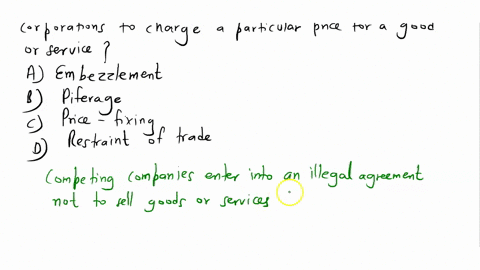 corporations to charge a particular price for a good
or service?
A) Embezzlement
B) Piferage
C) Price-fixing
D) Restraint of trade
Competing companies enter into an illegal agreement
not to sell goods or services